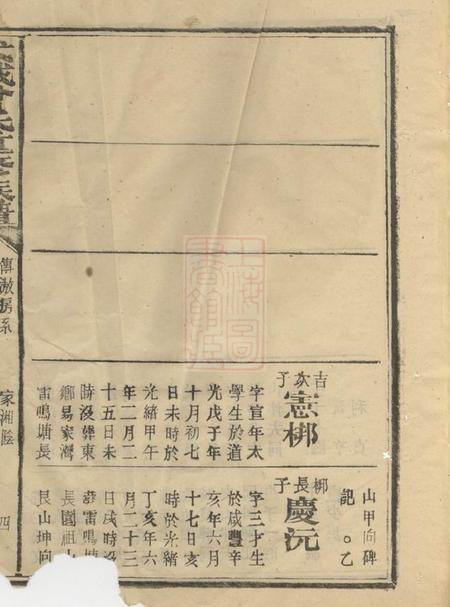 吉次子
憲梆
字宣年太
學生於道
光戊子年
十月初七
日未時於
光緒甲午
年二月二
十五日未
時沒葬東
鄉易家灣
雷鳴塘長
山甲向碑
記 ○乙
梆長子
慶沅
字三才生
於咸豐辛
亥年六月
十七日亥
時於光緒
丁亥年六
月二十三
日戌時沒
葬雷鳴塘
長園祖山
艮山坤向
傳
房系
家湘陰
四
上海圖書館藏